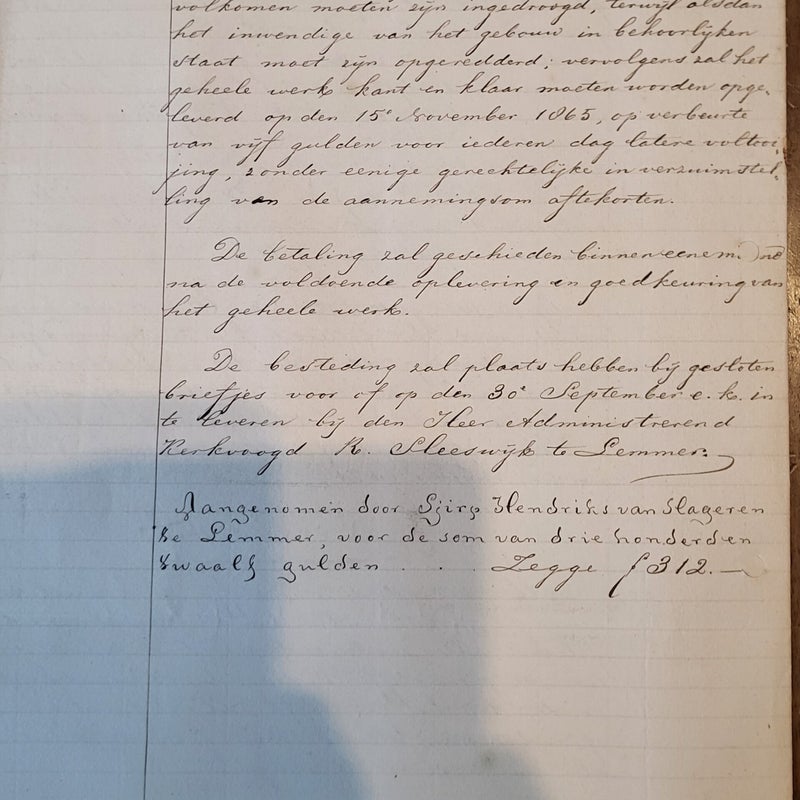 volkomen moeten zijn ingedroogd, terwijl alsdan
het inwendige van het gebouw in behoorlijken
staat moet zijn opgeredderd; vervolgens zal het
geheele werk kant en klaar moeten worden opge-
leverd op den 15e November 1865, op verbeurte
van vijf gulden voor iederen dag latere voltooi-
jing, zonder eenige gerechtelijke in verzuimstel-
ling van de aannemingsom aftekorten.
De betaling zal geschieden binnen eene
na de voldoende oplevering en goedkeuring van
het geheele werk.
De besteding zal plaats hebben bij gesloten
briefjes voor of op den 30e September e. k. in
te leveren bij den Heer Administrerend
Kerkvoogd R. Sleeswijk te Lemmer.
Aangenomen door Sjirp Hendriks van Slageren
te Lemmer, voor de som van drie honderd en
twaalf gulden . . . Zegge f 312.—